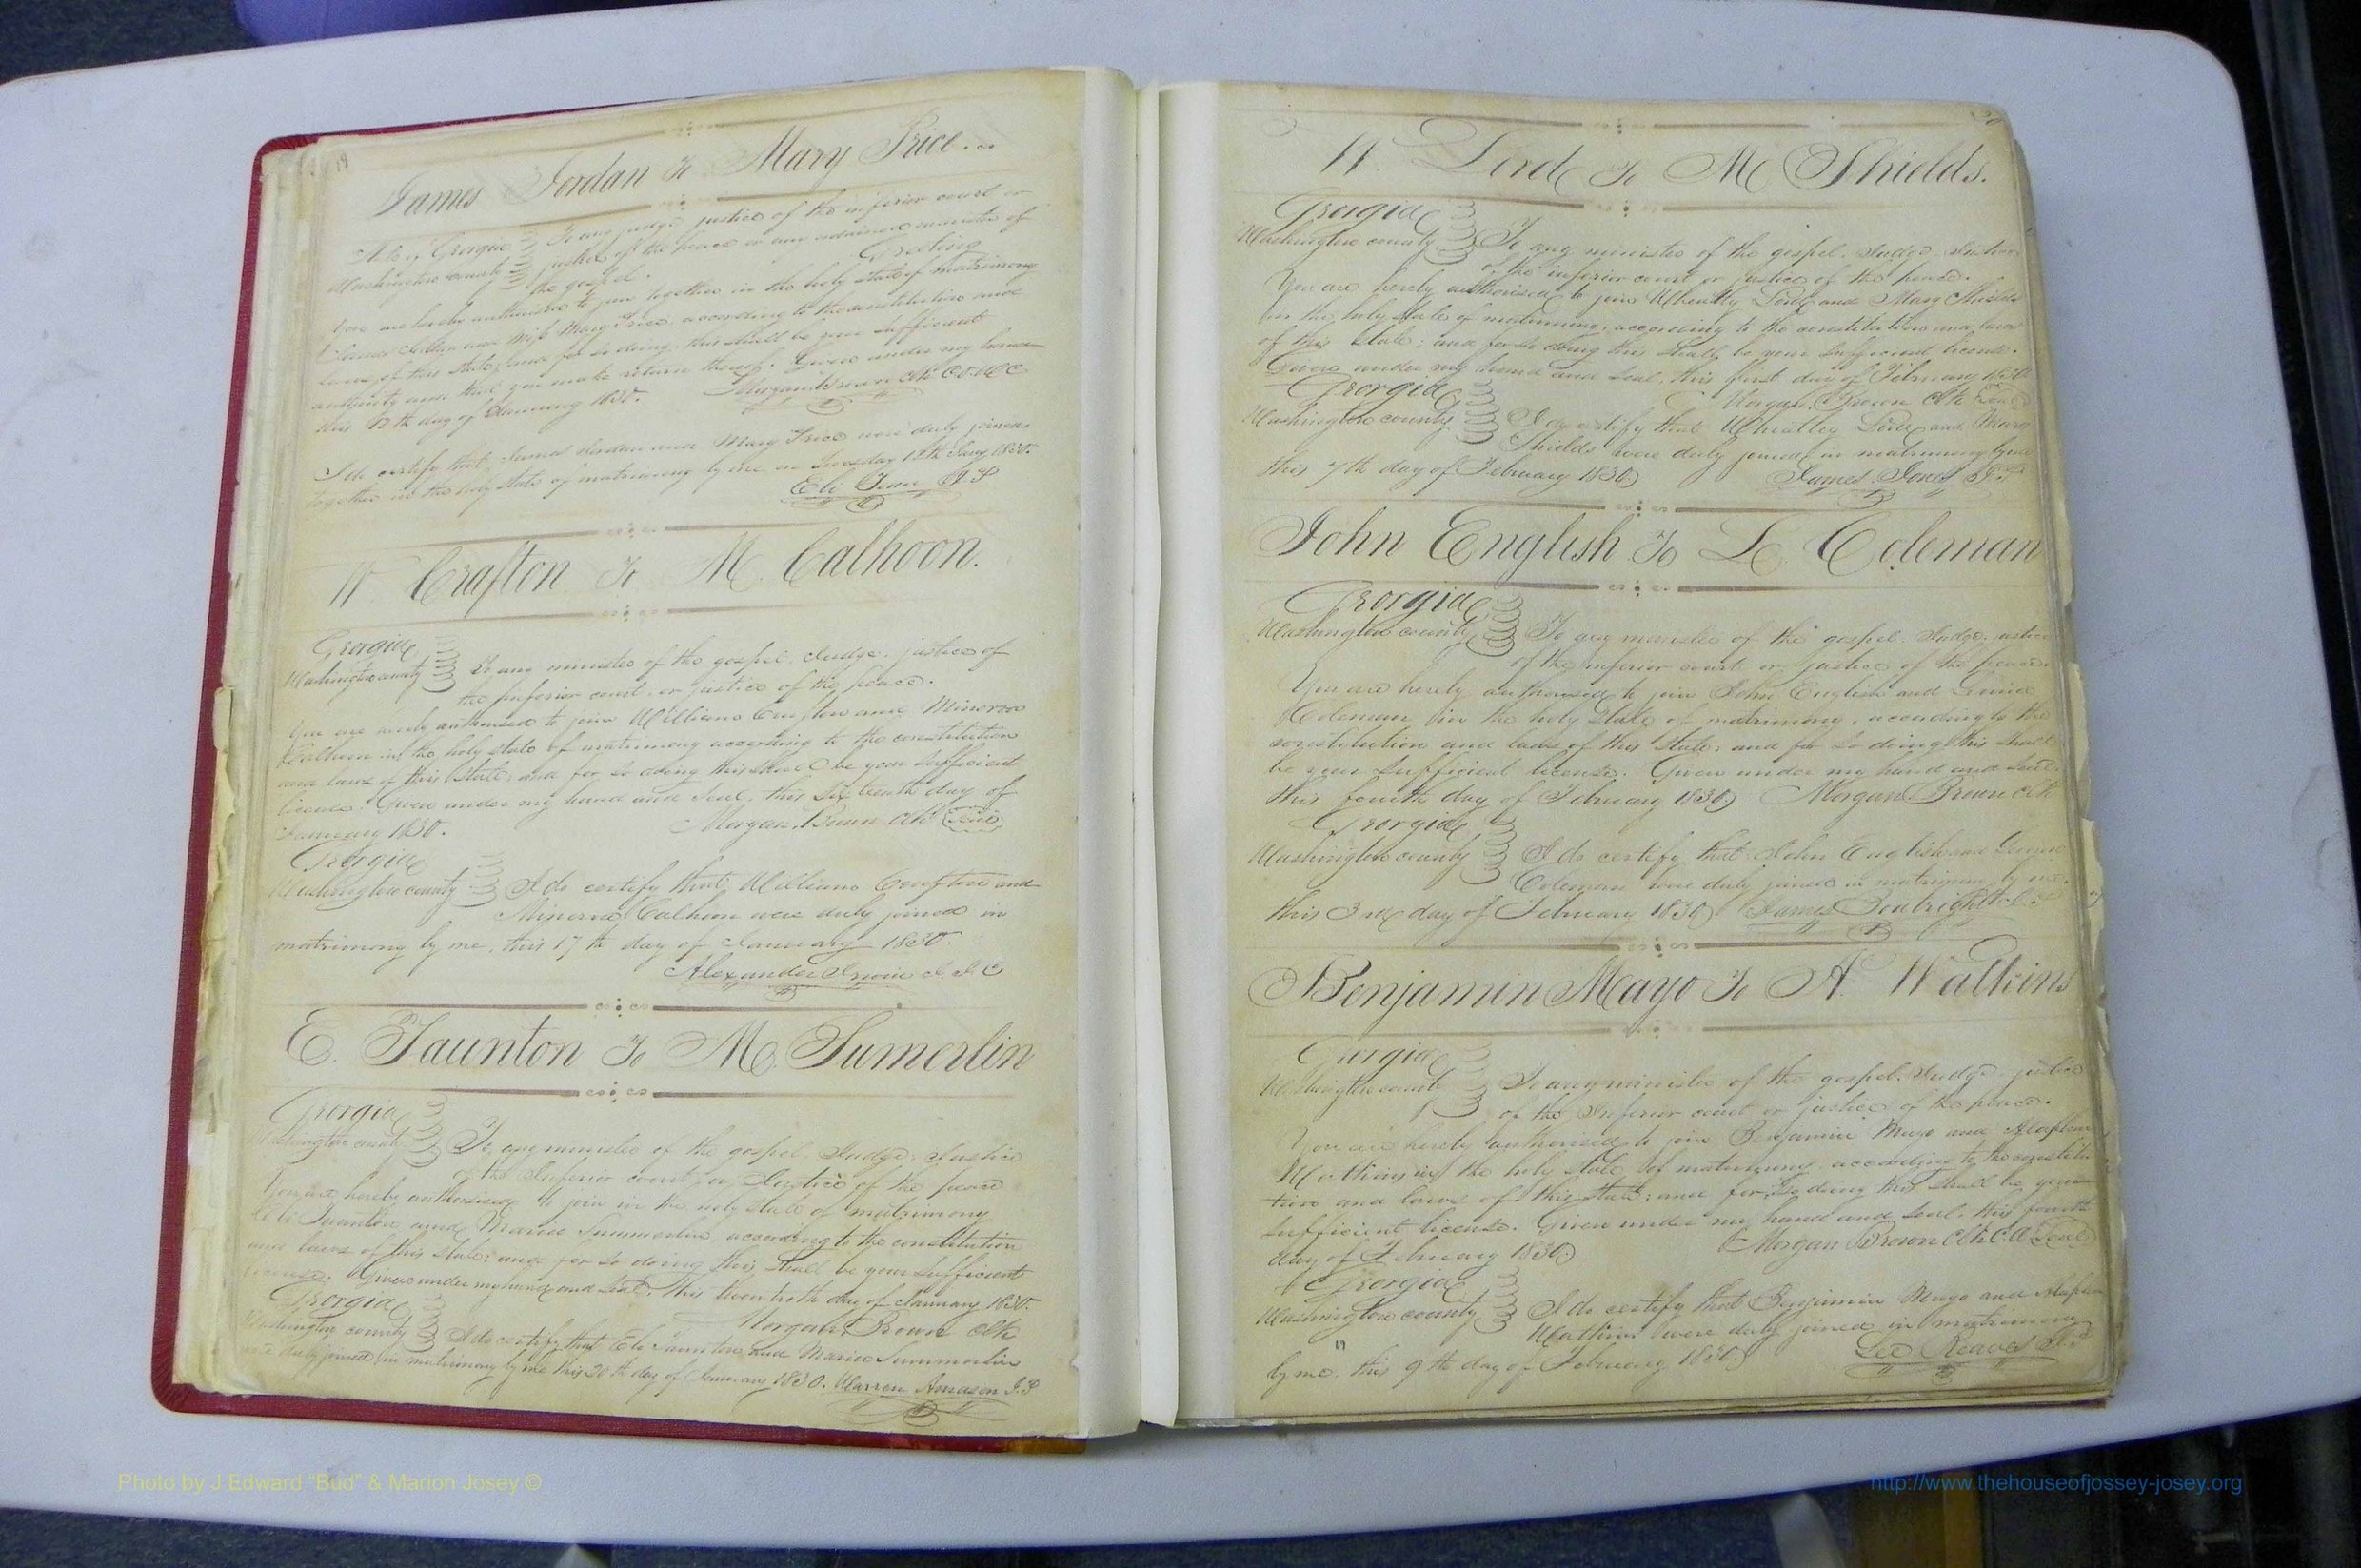 19
James Jordan To Mary Price
State of Georgia To any judge justice of the inferior court or
Washington county justice of the peace or any ordained minister of
the gospel. Greeting
You are hereby authorised to join together in the holy state of matrimony
James Jordan and Miss Mary Price according to the constitution and
laws of this state and for so doing this shall be your sufficient
authority and that you make return thereof. Given under my hand
this 12th day of January 1830. Morgan Brown Clk
I do certify that James Jordan and Mary Price were duly joined
together in the holy state of matrimony by me on Tuesday 12th Jany 1830.
Eli J.P
W. Crafton To M. Calhoon.
Georgia
Washington county To any minister of the gospel. Judge. justice of
the inferior court, or justice of the peace.
You are hereby authorised to join William Crafton and Minerva
Calhoon in the holy state of matrimony according to the constitution
and laws of this state, and for so doing this shall be your sufficient
licence. Given under my hand and seal, this sixteenth day of
January 1830. Morgan Brown Clk Seal
Georgia
Washington county I do certify that William Crafton and
Minerva Calhoon were duly joined in
matrimony by me, this 17th day of January 1830.
Alexander Irwin J. I. C
E. Taunton To M. Sumerlin
Georgia
Washington county To any minister of the gospel. Judge. Justice
of the Inferior court, or Justice of the peace
You are hereby authorised to join in the holy state of matrimony
Eli Taunton and Maria Summerlin, according to the constitution
and laws of this state; and for so doing this shall be your sufficient
license. Given under my hand and seal, this twentieth day of January 1830.
Georgia Morgan Brown Clk
Washington county I do certify that Eli Taunton and Maria Summerlin
were duly joined in matrimony by me this 20th day of January 1830. Warren Amason J.P
W. Lord To M Shields.
Georgia
Washington county To any minister of the gospel. Judge. Justice
of the inferior court or justice of the peace.
You are hereby authorised to join Wheatly Lord and Mary Shields
in the holy state of matrimony, according to the constitution and laws
of this state; and for so doing this shall be your sufficient license.
Given under my hand and seal, this first day of February 1830
Georgia Morgan Brown Clk Seal
Washington county I do certify that Wheatley Lord and Mary
Shields were duly joined in matrimony by me
this 7th day of February 1830 James Jones J.P
John English To L. Coleman
Georgia
Washington county To any minister of the gospel. Judge, justice
of the inferior court or justice of the peace.
You are hereby authorised to join John English and
Coleman in the holy state of matrimony, according to the
constitution and laws of this state; and for so doing this shall
be your sufficient license. Given under my hand and seal.
this fourth day of February 1830 Morgan Brown Clk
Georgia
Washington county I do certify that John English and
Coleman were duly joined in matrimony by me.
this 3rd day of February 1830 James Boatright J.P
Benjamin Mayo To A. Watkins
Georgia
Washington county To any minister of the gospel. Judge. justice
of the Inferior court or justice of the peace.
You are hereby authorised to join Benjamin Mayo and
Watkins in the holy state of matrimony according to the constitu
tion and laws of this state; and for so doing this shall be your
sufficient license. Given under my hand and seal, this fourth
day of February 1830 Morgan Brown Clk C.O Seal
Georgia
Washington county I do certify that Benjamin Mayo and
Watkins were duly joined in matrimony
by me. this 9th day of February 1830. Reaves J.P
Photo by J Edward "Bud" & Marion Josey ©
http://www.thehouseofjossey-josey.org